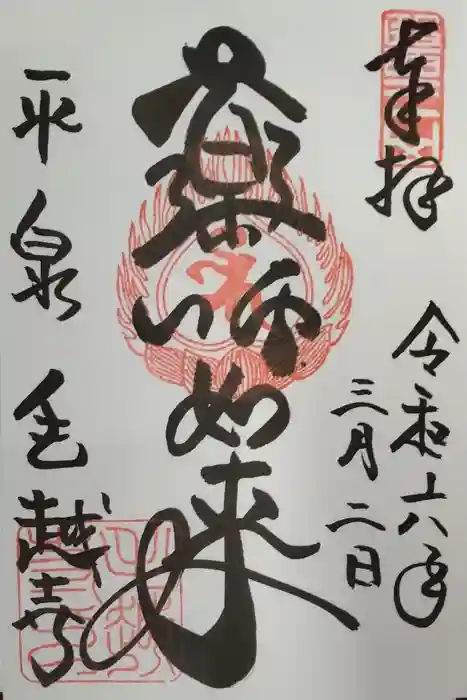 奉拝
令和六年
三月二日
薬師如来
平泉 毛越寺